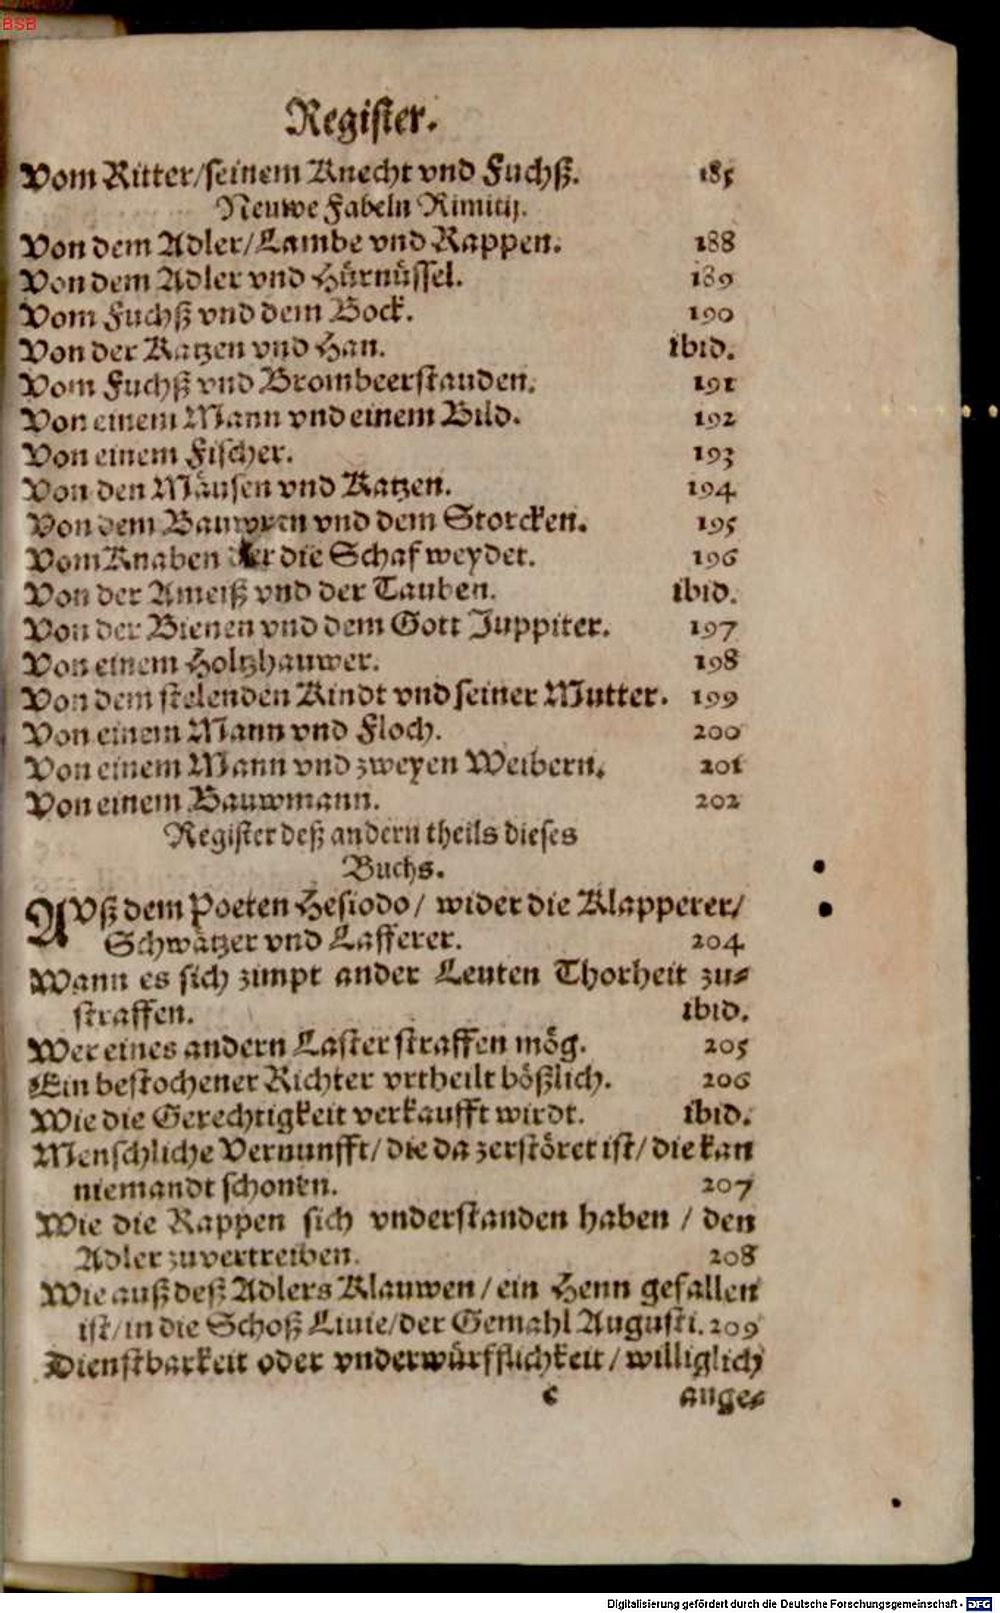 BSB
Register.
Vom Ritter/seinem Knecht vnd Fuchß. 185
Neuwe Fabeln Rimitij.
Von dem Adler/Lambe vnd Rappen. 188
Von dem Adler vnd Hürnüssel. 189
Vom Fuchß vnd dem Bock. 190
Von der Katzen vnd Han. ibid.
Vom Fuchß vnd Brombeerstauden. 191
Von einem Mann vnd einem Bild. 192
Von einem Fischer. 193
Von den Mäusen vnd Katzen. 194
Von dem Bauwren vnd dem Storcken. 195
Vom Knaben der die Schaf weydet. 196
Von der Ameiß vnd der Tauben. ibid.
Von der Bienen vnd dem Gott Juppiter. 197
Von einem Holtzhauwer. 198
Von dem stelenden Kindt vnd seiner Mutter. 199
Von einem Mann vnd Floch. 200
Von einem Mann vnd zweyen Weibern. 201
Von einem Bauwmann. 202
Register deß andern theils dieses
Buchs.
AVß dem Poeten Hesiodo/ wider die Klapperer/
Schwätzer vnd Lafferer. 204
Wann es sich zimpt ander Leuten Thorheit zu-
straffen. ibid.
Wer eines andern Laster straffen mög. 205
Ein bestochener Richter vrtheilt bößlich. 206
Wie die Gerechtigkeit verkaufft wirdt. ibid.
Menschliche Vernunfft/ die da zerstöret ist/ die kan
niemandt schonen. 207
Wie die Rappen sich vnderstanden haben / den
Adler zuvertreiben. 208
Wie auß deß Adlers Klauwen / ein Henn gefallen
ist/in die Schoß Liuie/der Gemahl Augusti. 209
Dienstbarkeit oder vnderwürfflichkeit / williglich
c ange-
Digitalisierung gefördert durch die Deutsche Forschungsgemeinschaft - DFG